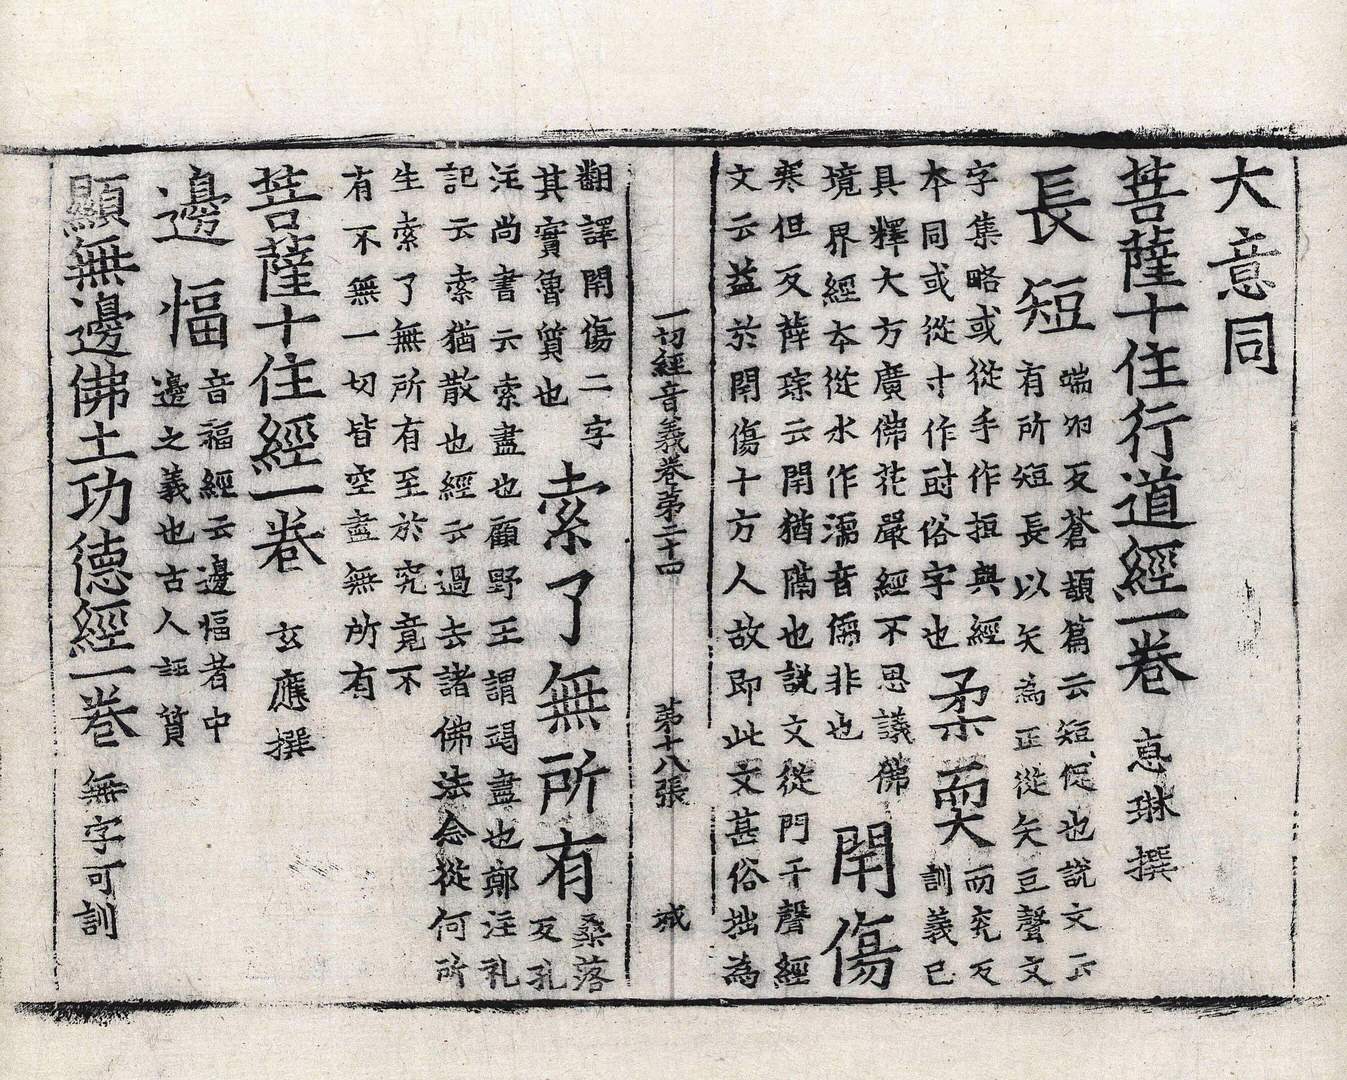 大意同
菩薩十住行道經一卷 惠琳撰
長短 端夘反蒼頡篇云短促也說文云
有所短長以矢為正從矢豆聲文
字集略或從手作與經
本同或從寸作俗字也
柔耎 而兖反
訓義已
具釋大方廣佛花嚴經不思議佛
境界經本從水作濡音儒非也
閈傷
寒但反薛琮云閈猶隔也說文從門干聲經
文云益於閈傷十方人故即此文甚俗拙為
一切經音義卷第二十四 第十八張 城
翻譯閈傷二字
其實魯質也
索了無所有 桑落
反孔
注尚書云索盡也顧野王謂竭盡也鄭注礼
記云索猶散也經云過去諸佛法念從何所
生索了無所有至於究竟不
有不無一切皆空盡無所有
菩薩十住經一卷 玄應撰
邊愊 音福經云邊愊者中
邊之義也古人誣質
顯無邊佛土功德經一卷 無字可訓